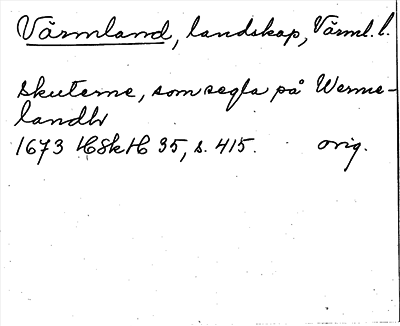 Värmland, landskap, Värml. l.
skuterne, som segla på Werme-
landh
1673 HSkH 35, s. 415. orig.